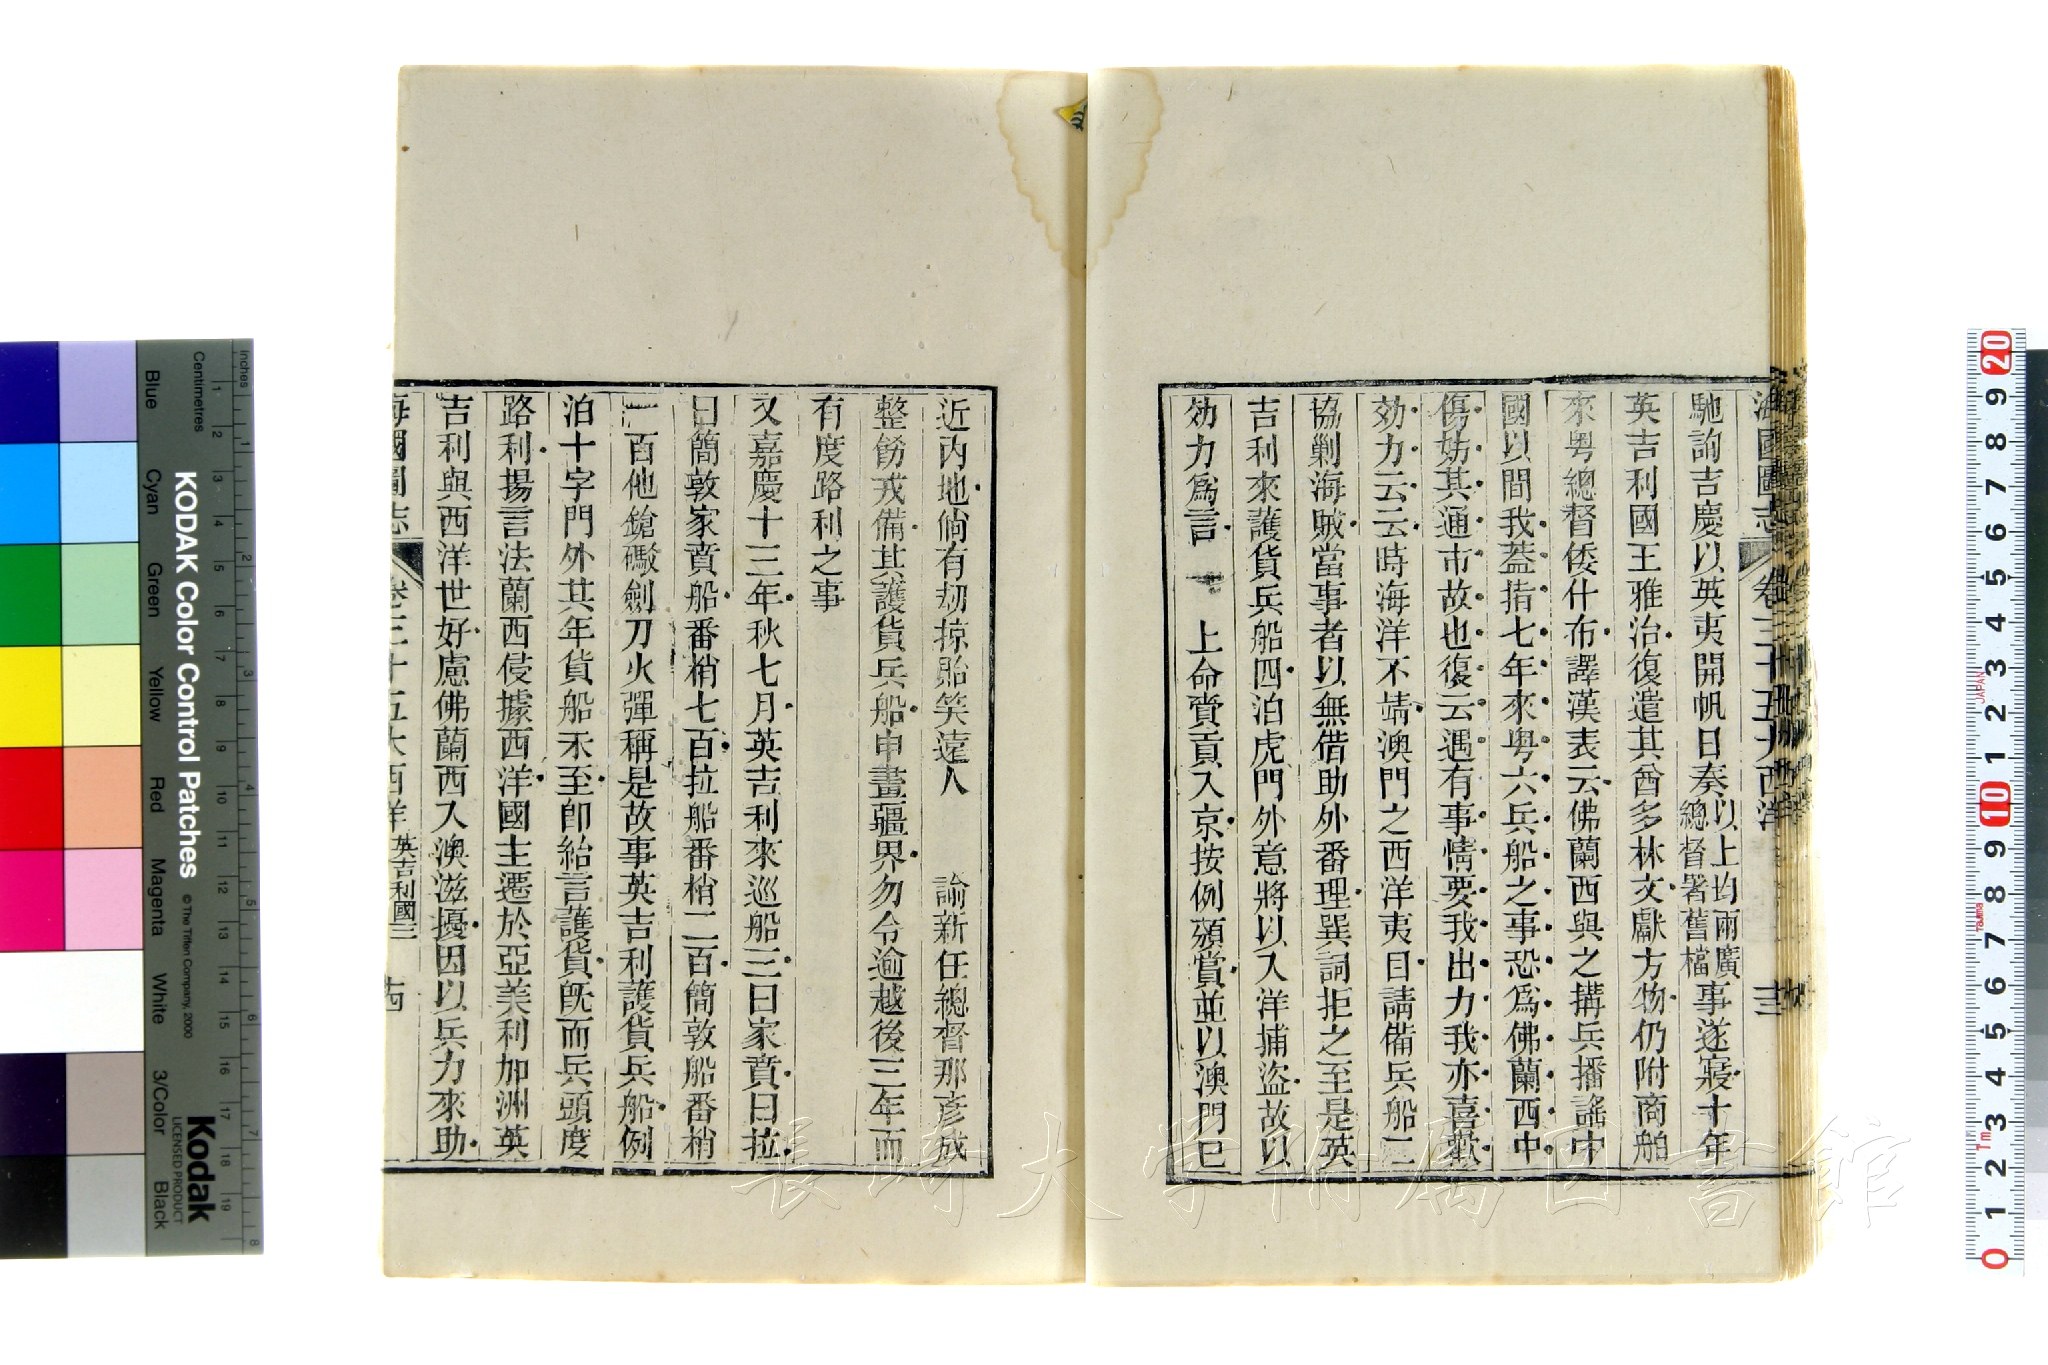 海國圖志 卷三十五大西洋 三
馳詢吉慶以英夷開帆日奏以上均兩廣總督署舊檔事遂寢十年
英吉利國王雅治復遣其酋多林文獻方物仍附商舶
來粤總督倭什布譯漢表云佛蘭西與之搆兵播謠中
國以間我蓋指七年來粤六兵船之事恐爲佛蘭西中
傷妨其通市故也復云遇有事情要我出力我亦喜歡
効力云云時海洋不靖澳門之西洋夷目請備兵船二
協剿海賊當事者以無借助外番理巽詞拒之至是英
吉利來護貨兵船四泊虎門外意將以入洋捕盜故以
効力爲言 上命賚貢入京按例頒賞並以澳門已
近內地倘有刼掠貽笑遠人 諭新任總督那彥成
整飭戎備其護貨兵船申畫疆界勿令逾越後三年而
有度路利之事
又嘉慶十三年秋七月英吉利來巡船三曰家賁曰拉
曰簡敦家賁船番梢七百拉船番梢二百簡敦船番梢
一百他鎗礮劍刀火彈稱是故事英吉利護貨兵船例
泊十字門外其年貨船未至卽紿言護貨旣而兵頭度
路利揚言法蘭西侵據西洋國主遷於亞美利加洲英
吉利與西洋世好慮佛蘭西入澳滋擾因以兵力來助
海國圖志 卷三十五大西洋英吉利國三 古
KODAK Color Control Patches
© The Tiffen Company, 2000
Kodak
LICENSED PRODUCT
Blue Cyan Green Yellow Red Magenta White 3/Color Black
Centimetres
Inches
長崎大学附属図書館
JAPAN